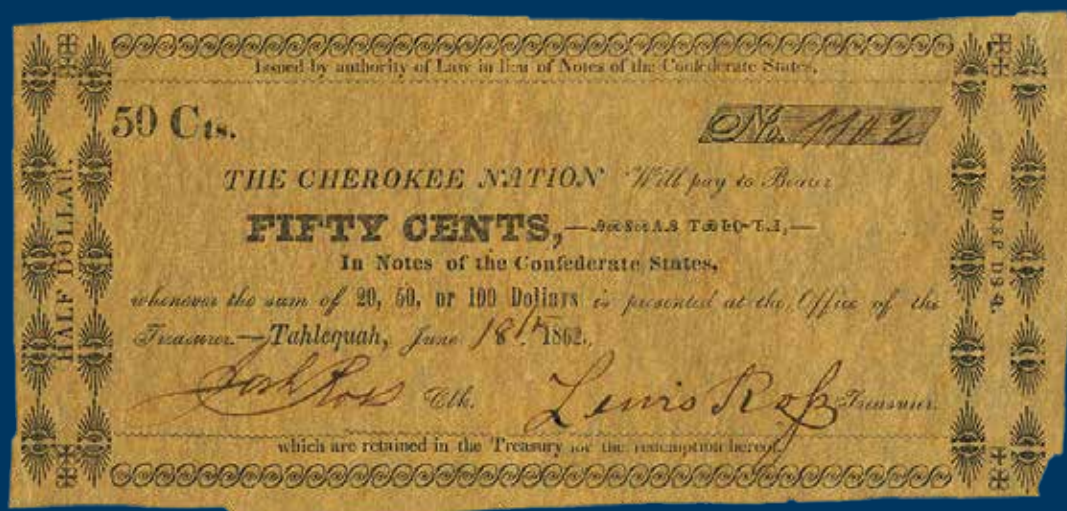 Issued by authority of Law in lieu of Notes of the Confederate States,
50 Cts.
No. 1102
THE CHEROKEE NATION Will pay to Bearer
FIFTY CENTS,—
In Notes of the Confederate States,
whenever the sum of 20, 50, or 100 Dollars is presented at the Office of the
Treasurer.—Tahlequah, June 18th 1862.
Josh Ross Clk. Lewis Ross Treasurer.
which are retained in the Treasury for the redemption hereof.
HALF DOLLAR.